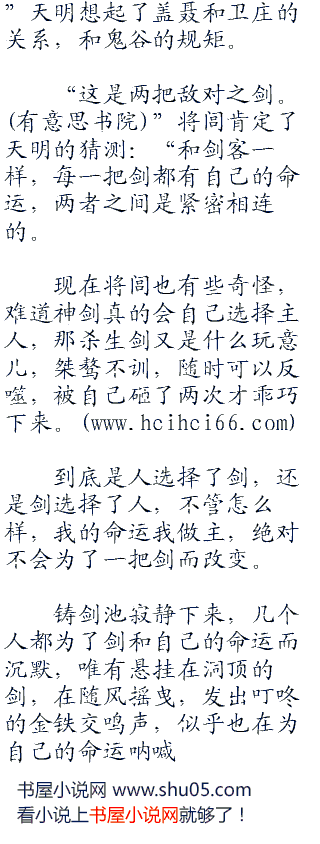 ”天明想起了盖聂和卫庄的
关系，和鬼谷的规矩。
“这是两把敌对之剑。
(有意思书院)”将闾肯定了
天明的猜测：“和剑客一
样，每一把剑都有自己的命
运，两者之间是紧密相连
的。
现在将闾也有些奇怪，
难道神剑真的会自己选择主
人，那杀生剑又是什么玩意
儿，桀骜不训，随时可以反
噬，被自己砸了两次才乖巧
下来。(www.hcihci66.com)
到底是人选择了剑，还
是剑选择了人，不管怎么
样，我的命运我做主，绝对
不会为了一把剑而改变。
铸剑池寂静下来，几个
人都为了剑和自己的命运而
沉默，唯有悬挂在洞顶的
剑，在随风摇曳，发出叮咚
的金铁交鸣声，似乎也在为
自己的命运呐喊
书屋小说网 www.shu05.com
看小说上书屋小说网就够了！